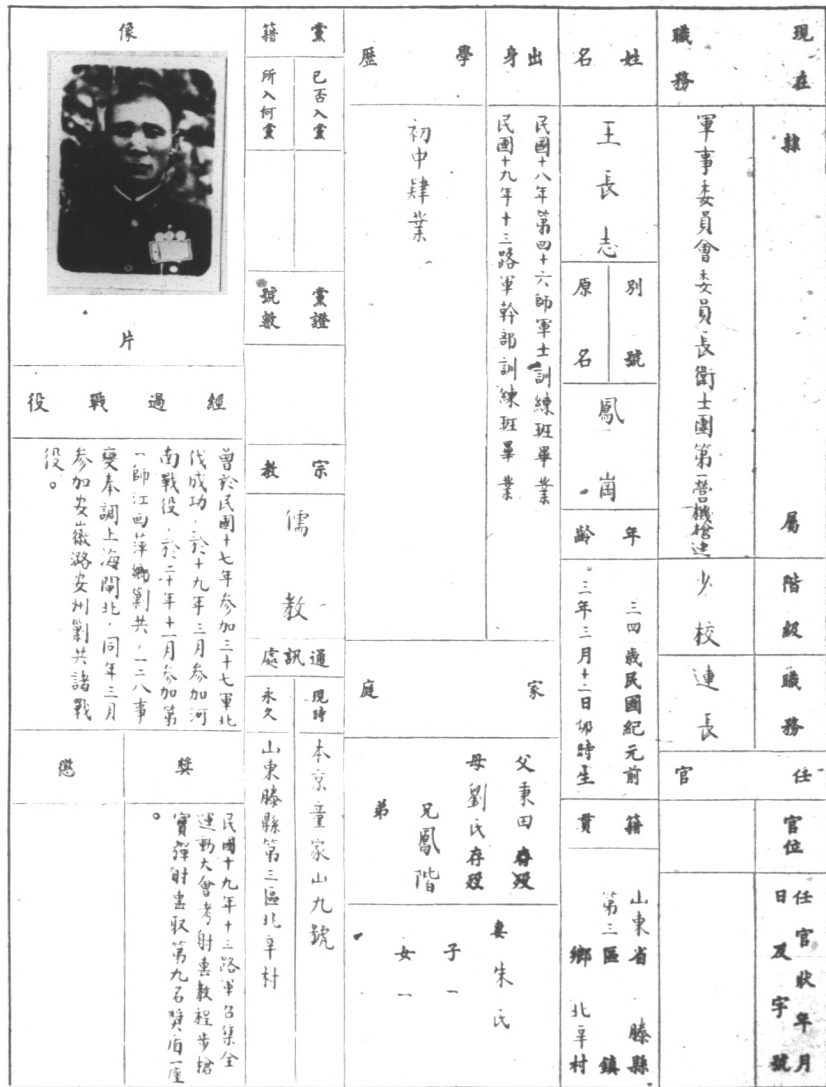 現在職務
隸屬
軍事委員會委員長衛士團第一營機槍連
階級
少校
職務
連長
任官
官位
任官狀年月日及字號
姓名
王長志
別號
原名
鳳崗
年齡
三四歲民國紀元前
三年三月十二日卯時生
籍貫
山東省 滕縣
第三區 鎮
鄉 北辛村
出身
民國十八年第四十六師軍士訓練班畢業
民國十九年十三路軍幹部訓練班畢業
學歷
初中肄業
家庭
父秉田存歿
母劉氏存歿
兄鳳階
弟
妻朱氏
子一
女一
黨籍
已否入黨
所入何黨
黨證號數
宗教
儒教
通訊處
現時
本京童家山九號
永久
山東滕縣第三區北辛村
像
片
經過戰役
曾於民國十七年參加三十七軍北
伐成功,於十九年三月參加河
南戰役,於二十年十一月參加第
一師江西萍鄉剿共,一二八事
變奉調上海閘北,同年三月
參加安徽潞安州剿共諸戰
役。
獎
民國十九年十三路軍召集全
運動大會考射擊教程步槍
實彈射擊取第九名獎盾一座
。
懲